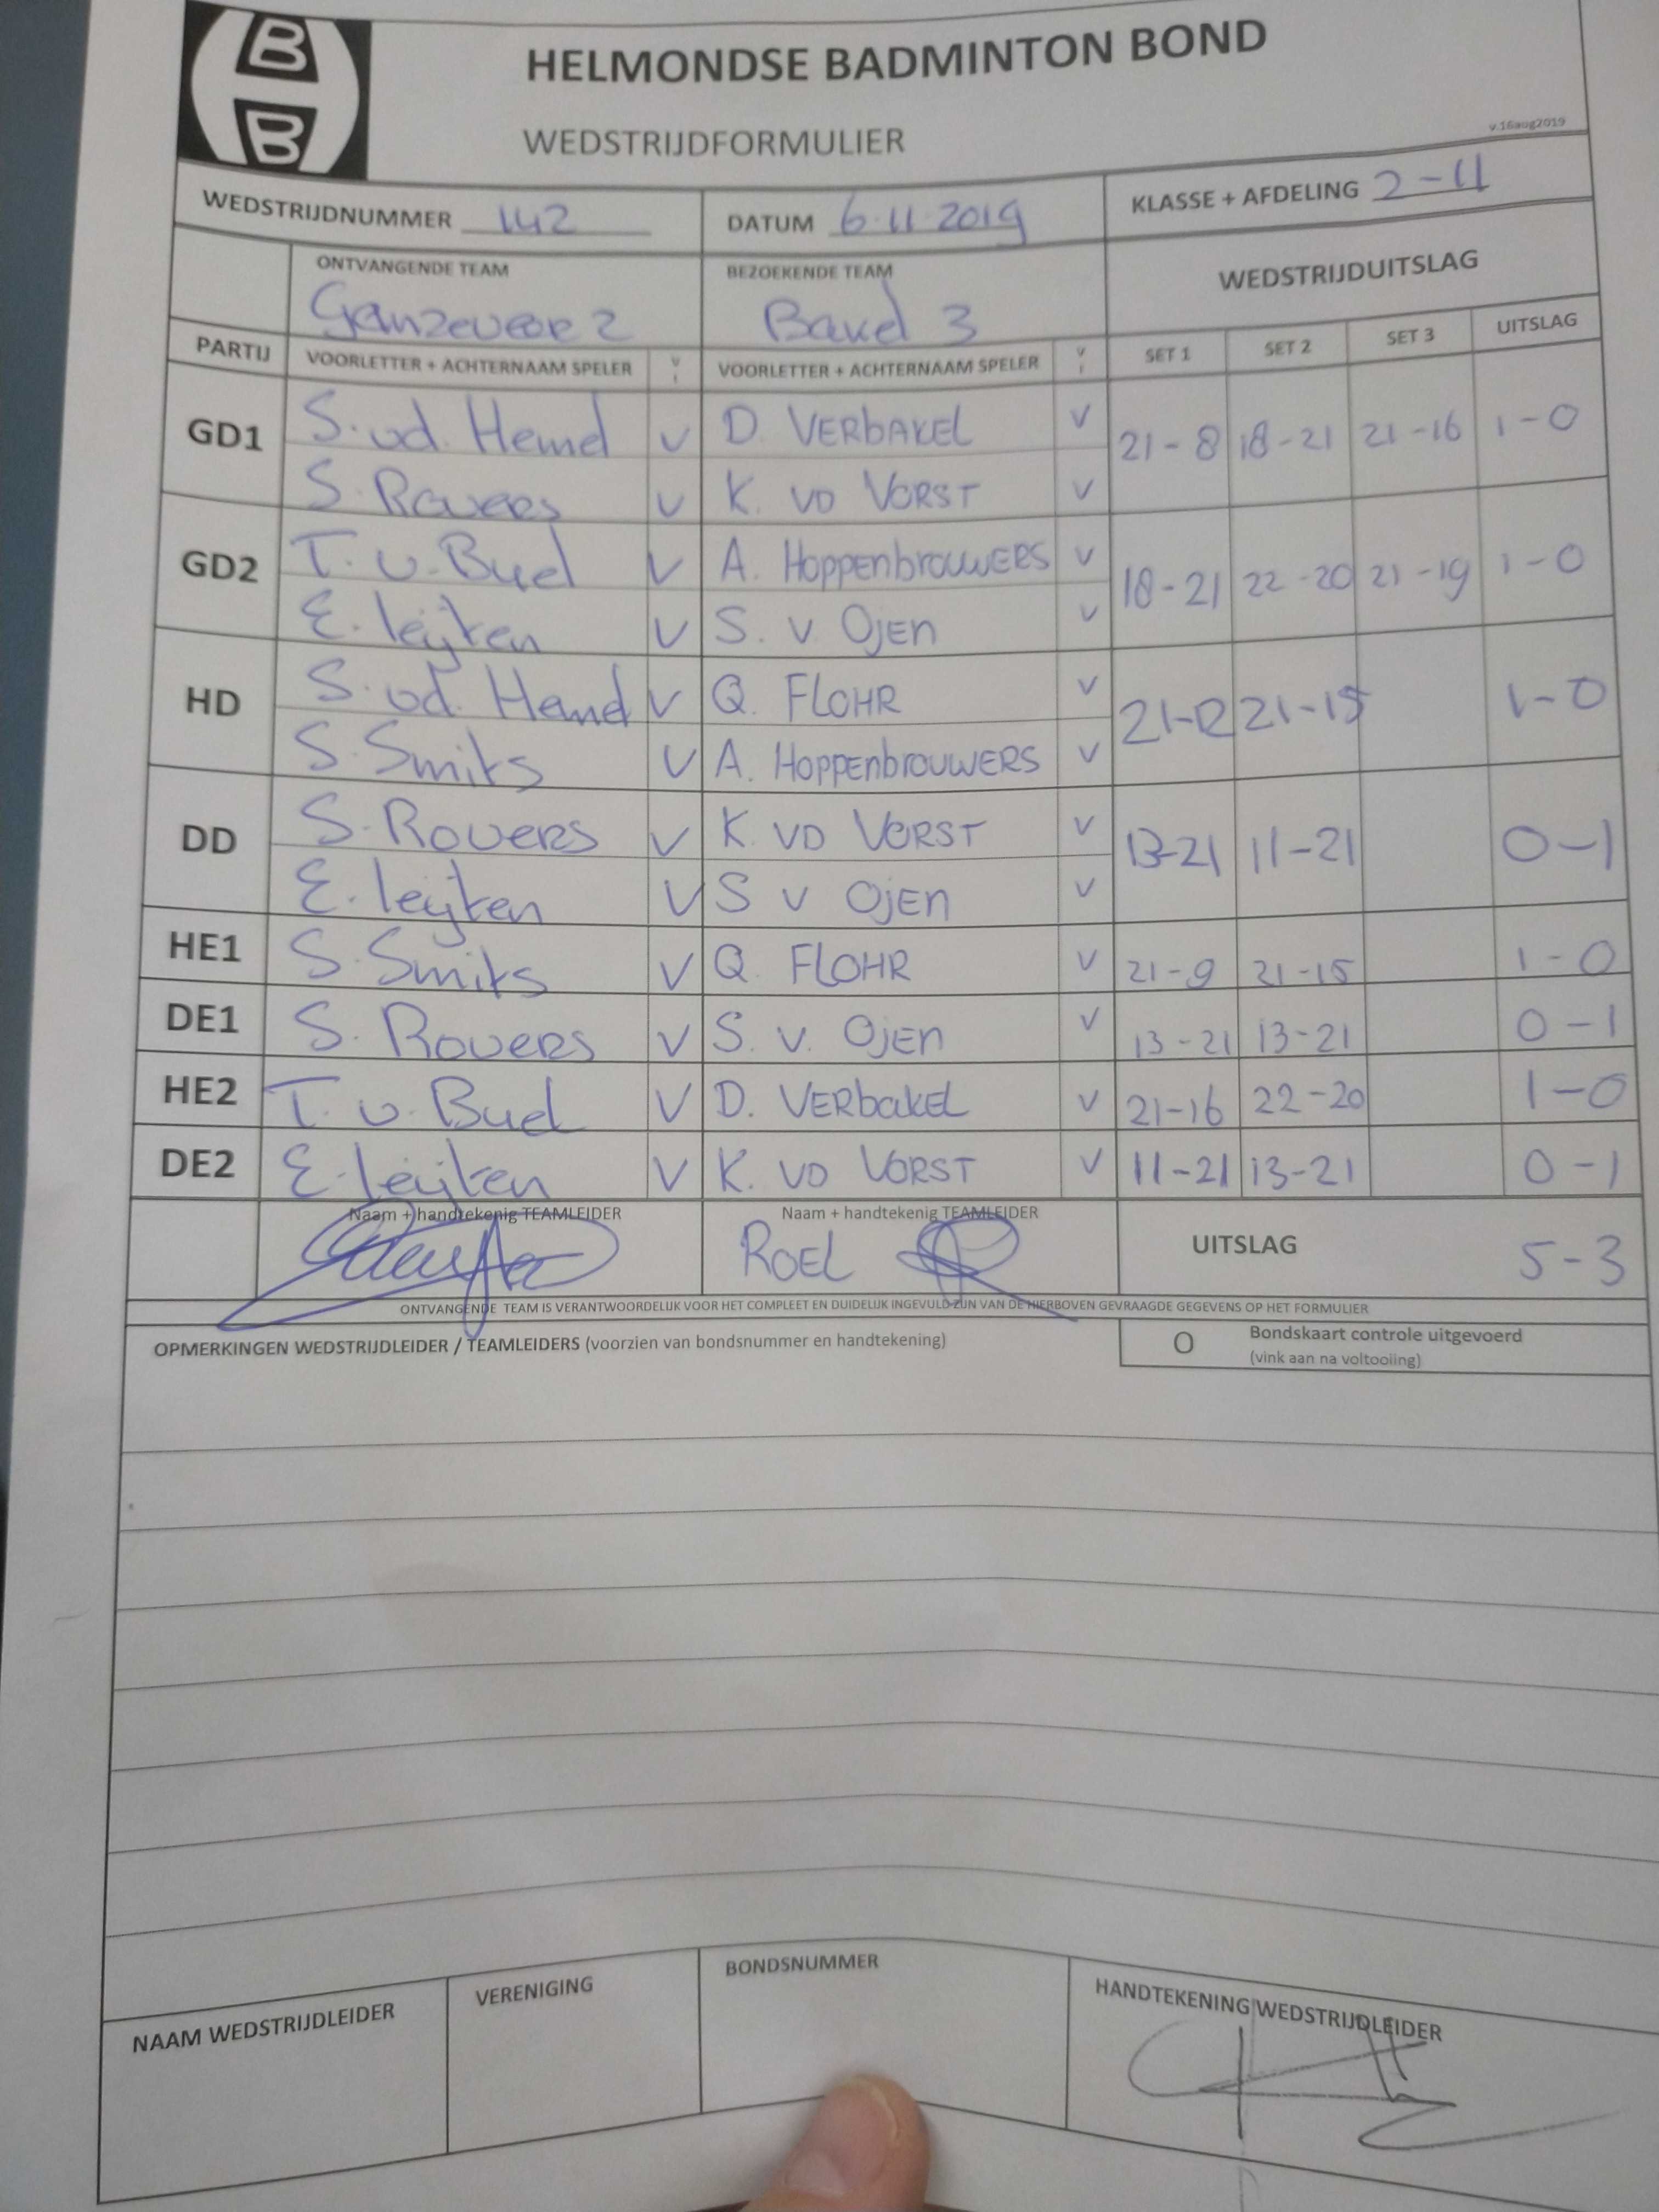 B
B
HELMONDSE BADMINTON BOND
WEDSTRIJDFORMULIER
v.16aug2019
WEDSTRIJDNUMMER 142 DATUM 6-11-2019 KLASSE + AFDELING 2-11
ONTVANGENDE TEAM BEZOEKENDE TEAM WEDSTRIJDUITSLAG
Ganzeveer 2 Bakel 3
PARTIJ VOORLETTER + ACHTERNAAM SPELER V VOORLETTER + ACHTERNAAM SPELER V SET 1 SET 2 SET 3 UITSLAG
GD1 S. vd. Hemd V D. VERbAKEL V 21-8 18-21 21-16 1-0
S. Rovers V K. VD VORST V
GD2 T. v. Bud V A. HoppenbrouwERS V 18-21 22-20 21-19 1-0
E. leijten V S. v. OjEn V
HD S. vd. Hemd V Q. FLOHR V 21-12 21-15 1-0
S. Smits V A. HoppenbroUWERS V
DD S. Rovers V K. VD VORST V 13-21 11-21 0-1
E. leijten V S v OjEn V
HE1 S. Smits V Q. FLOHR V 21-9 21-15 1-0
DE1 S. Rovers V S. v. OjEn V 13-21 13-21 0-1
HE2 T. v. Bud V D. VERbakEL V 21-16 22-20 1-0
DE2 E. leijten V K. VD VORST V 11-21 13-21 0-1
Naam + handtekenig TEAMLEIDER Naam + handtekenig TEAMLEIDER
ROEL UITSLAG 5-3
ONTVANGENDE TEAM IS VERANTWOORDELIJK VOOR HET COMPLEET EN DUIDELIJK INGEVULD ZIJN VAN DE HIERBOVEN GEVRAAGDE GEGEVENS OP HET FORMULIER
OPMERKINGEN WEDSTRIJDLEIDER / TEAMLEIDERS (voorzien van bondsnummer en handtekening) O Bondskaart controle uitgevoerd
(vink aan na voltooiing)
NAAM WEDSTRIJDLEIDER VERENIGING BONDSNUMMER HANDTEKENING WEDSTRIJDLEIDER